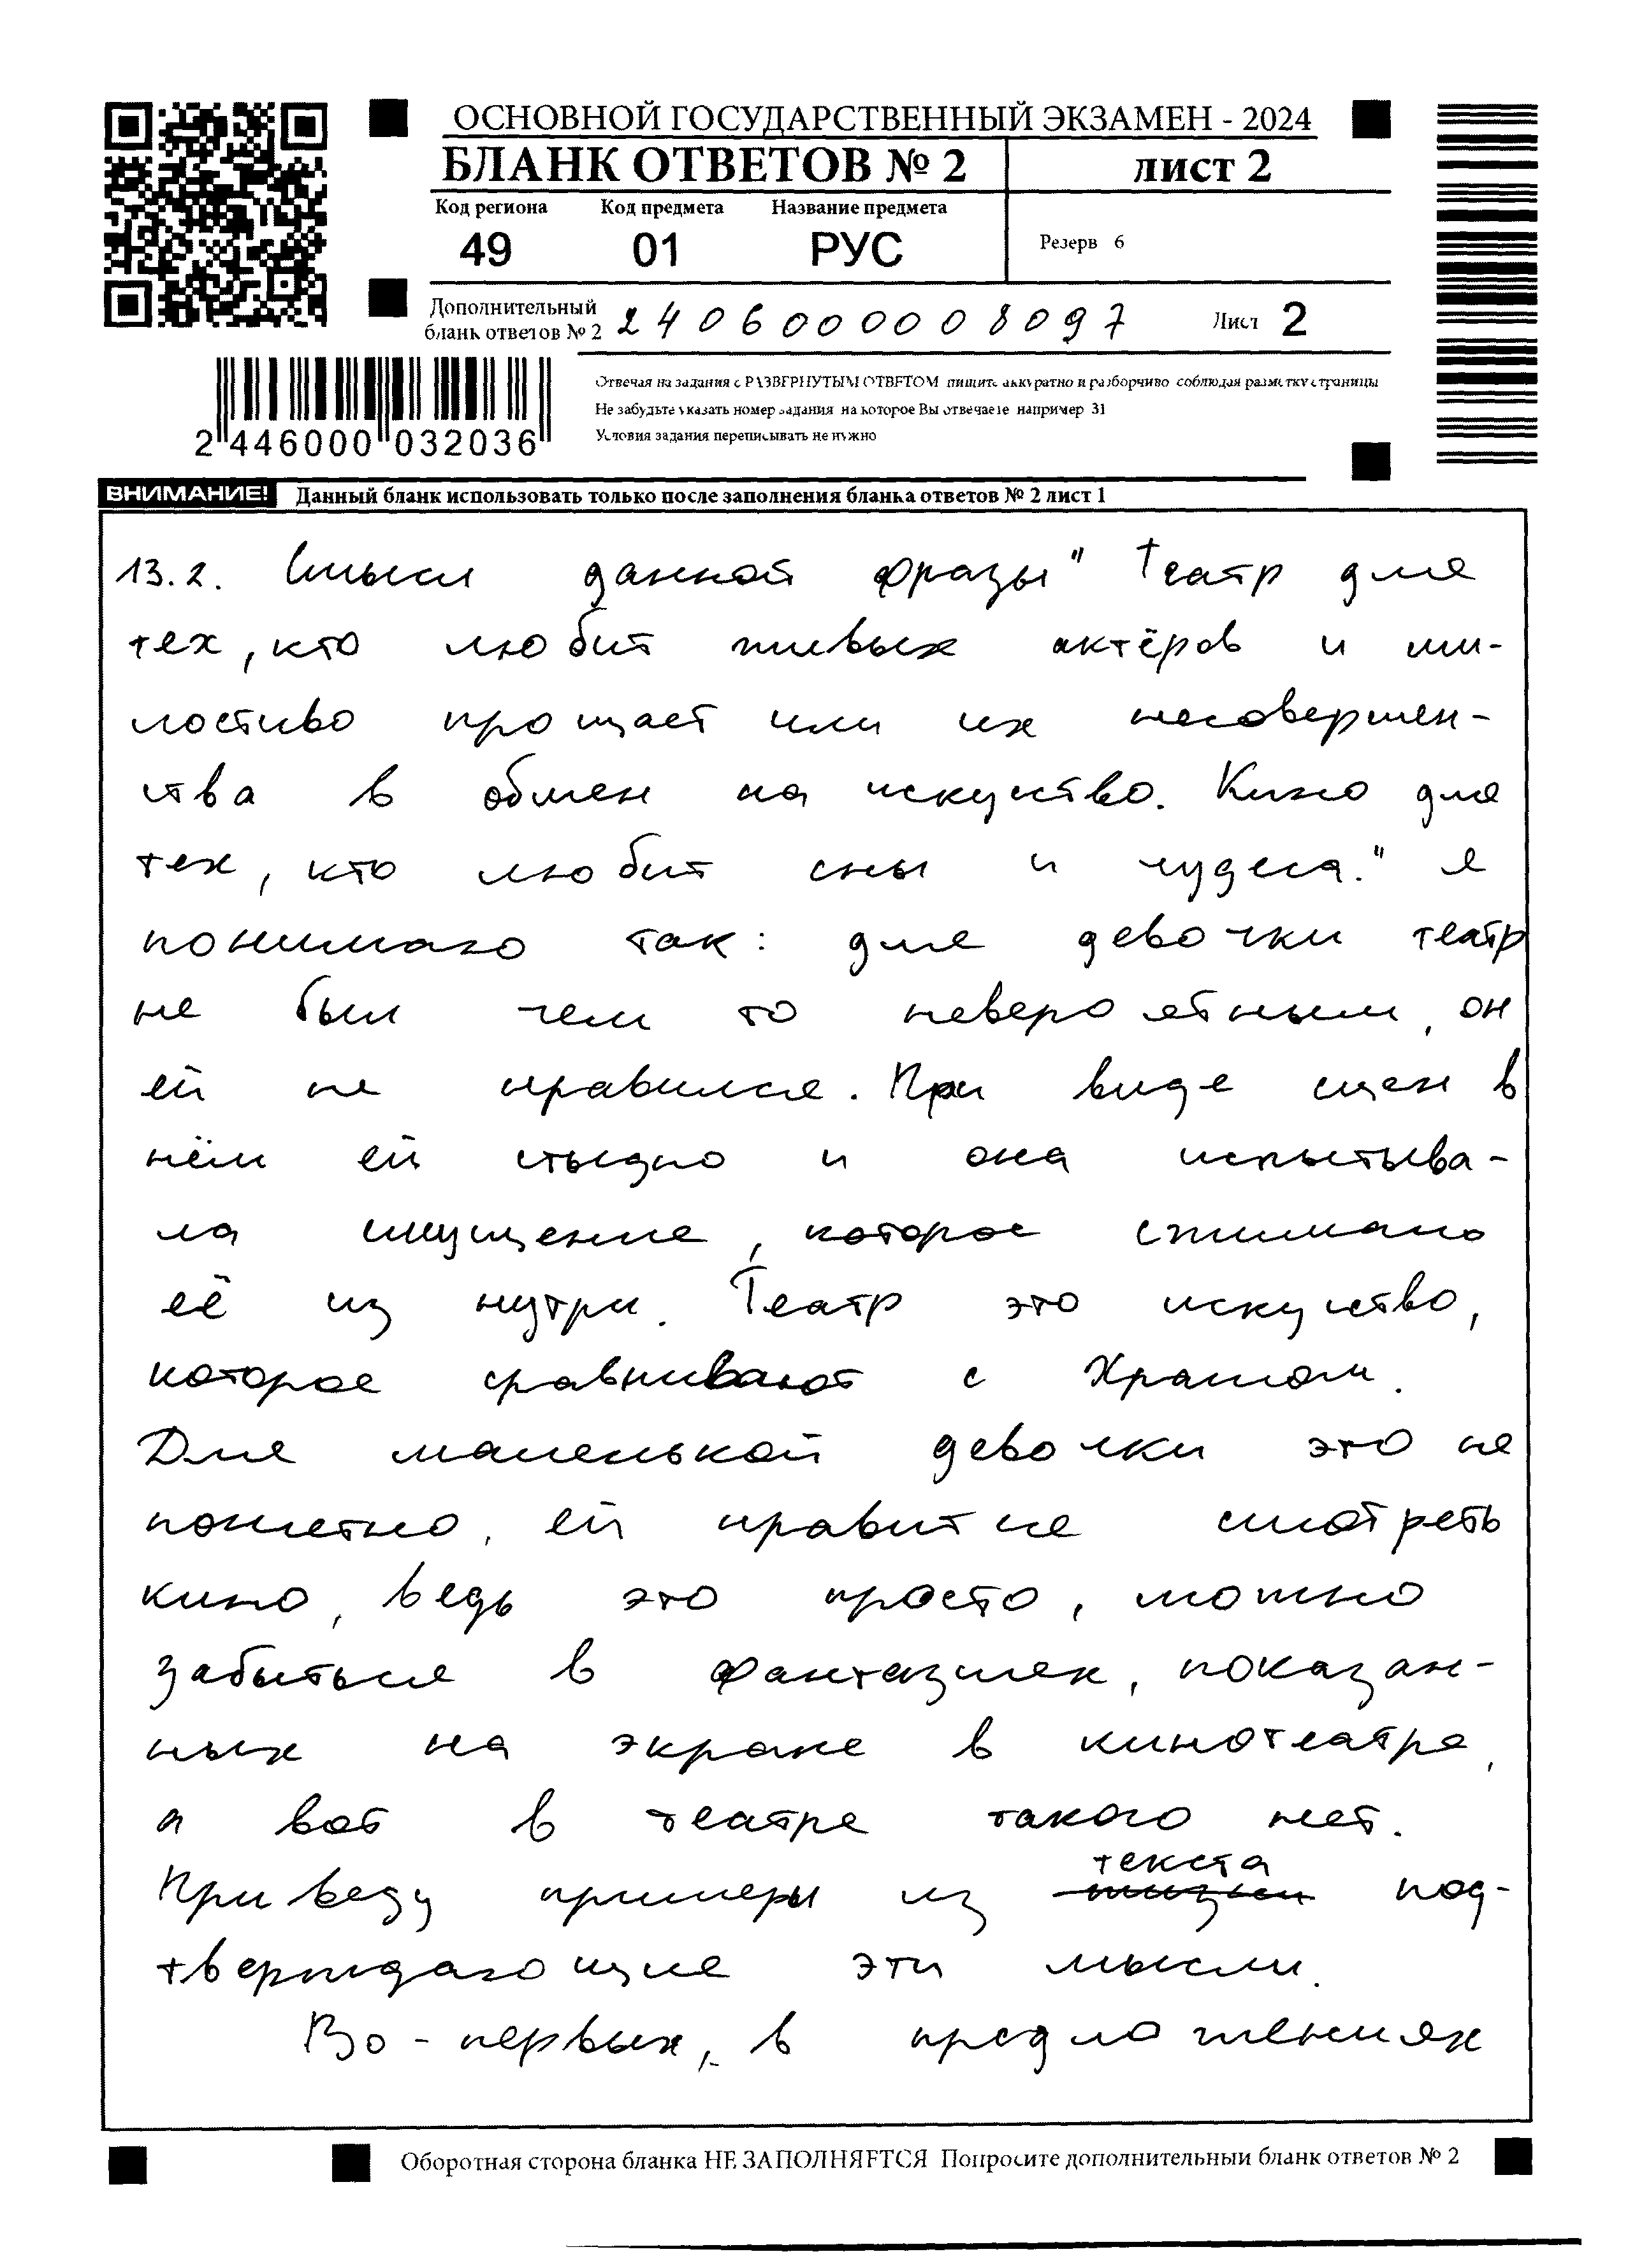 ОСНОВНОЙ ГОСУДАРСТВЕННЫЙ ЭКЗАМЕН - 2024
БЛАНК ОТВЕТОВ № 2
лист 2
Код региона Код предмета Название предмета
49 01 РУС
Резерв 6
Дополнительный
бланк ответов № 2
2406000008097
Лист 2
Отвечая на задания с РАЗВЕРНУТЫМ ОТВЕТОМ пишите аккуратно и разборчиво соблюдая разметку страницы
Не забудьте указать номер задания на которое Вы отвечаете например 31
Условия задания переписывать не нужно
2 446000 032036
ВНИМАНИЕ! Данный бланк использовать только после заполнения бланка ответов № 2 лист 1
13.2. Смысл данной фразы " Театр для
тех, кто любит живых актёров и ми-
лостиво прощает или их несовершен-
ства в обмен на искуство. Кино для
тех, кто любит сны и чудеса." я
понимаю так: для девочки театр
не был чем то невероятным, он
ей не нравился. При виде сцен в
нём ей стыдно и она испытыва-
ла смущение, которое сжимало
её из нутри. Театр это искуство,
которое сравнивают с Храмом.
Для маленькой девочки это не
понятно, ей нравится смотреть
кино, ведь это просто, можно
забыться в фантазиях, показан-
ных на экране в кинотеатре,
а вот в театре такого нет.
Приведу примеры из жизни текста под-
тверждающие эти мысли.
Во-первых, в предложениях
Оборотная сторона бланка НЕ ЗАПОЛНЯЕТСЯ Попросите дополнительный бланк ответов № 2